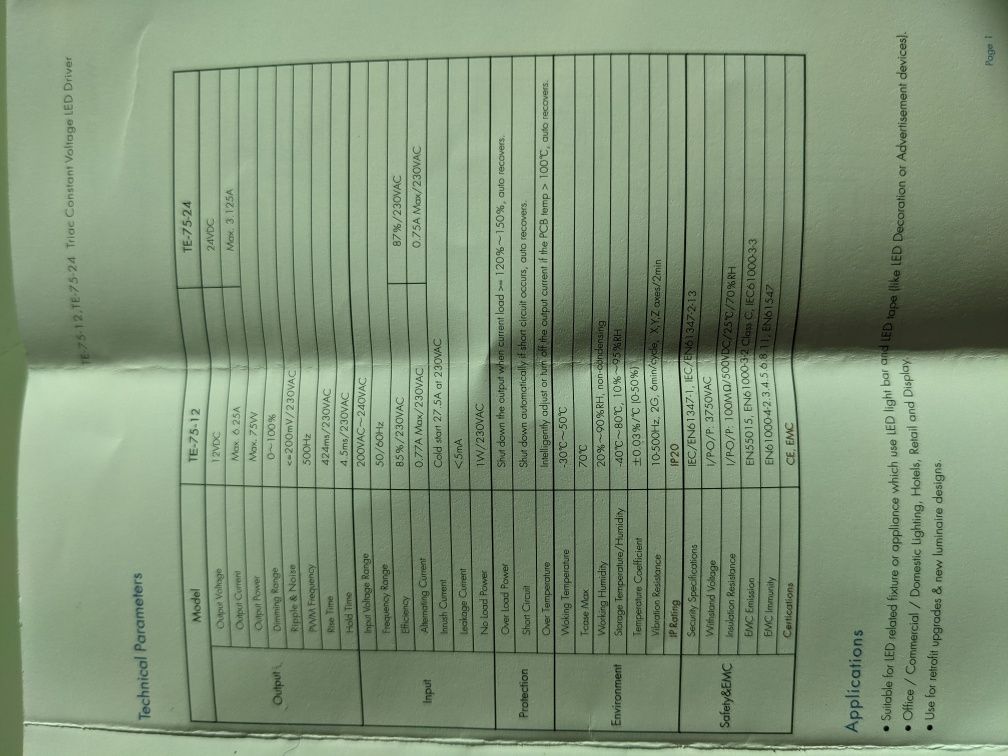 TE-75-12,TE-75-24 Triac Constant Voltage LED Driver
Technical Parameters
Model TE-75-12 TE-75-24
Output
Output Voltage 12VDC 24VDC
Output Current Max. 6.25A Max. 3.125A
Output Power Max. 75W
Dimming Range 0~100%
Ripple & Noise <=200mV/230VAC
PWM Frequency 500Hz
Rise Time 424ms/230VAC
Hold Time 4.5ms/230VAC
Input
Input Voltage Range 200VAC~240VAC
Frequency Range 50/60Hz
Efficiency 85%/230VAC 87%/230VAC
Alternating Current 0.77A Max/230VAC 0.75A Max/230VAC
Inrush Current Cold start 27.5A at 230VAC
Leakage Current <5mA
No Load Power 1W/230VAC
Protection
Over Load Power Shut down the output when current load >= 120%~150%, auto recovers.
Short Circuit Shut down automatically if short circuit occurs, auto recovers.
Over Temperature Intelligently adjust or turn off the output current if the PCB temp > 100℃, auto recovers.
Environment
Woking Temperature -30℃~50℃
Tcase Max 70℃
Working Humidity 20%~90%RH, non-condensing
Storage Temperature/Humidity -40℃~80℃, 10%~95%RH
Temperature Coefficient ±0.03%/℃ (0-50%)
Vibration Resistance 10-500Hz, 2G, 6min/cycle, X,Y,Z axes/2min
IP Rating IP20
Safety&EMC
Security Specifications IEC/EN61347-1, IEC/EN61347-2-13
Withstand Voltage I/P-O/P: 3750VAC
Insulation Resistance I/P-O/P: 100MΩ/500VDC/25℃/70%RH
EMC Emission EN55015, EN61000-3-2 Class C, IEC61000-3-3
EMC Immunity EN61000-4-2,3,4,5,6,8,11, EN61547
Certications CE, EMC
Applications
• Suitable for LED related fixture or appliance which use LED light bar and LED tape (like LED Decoration or Advertisement devices).
• Office / Commercial / Domestic Lighting, Hotels, Retail and Display.
• Use for retrofit upgrades & new luminaire designs.
Page 1